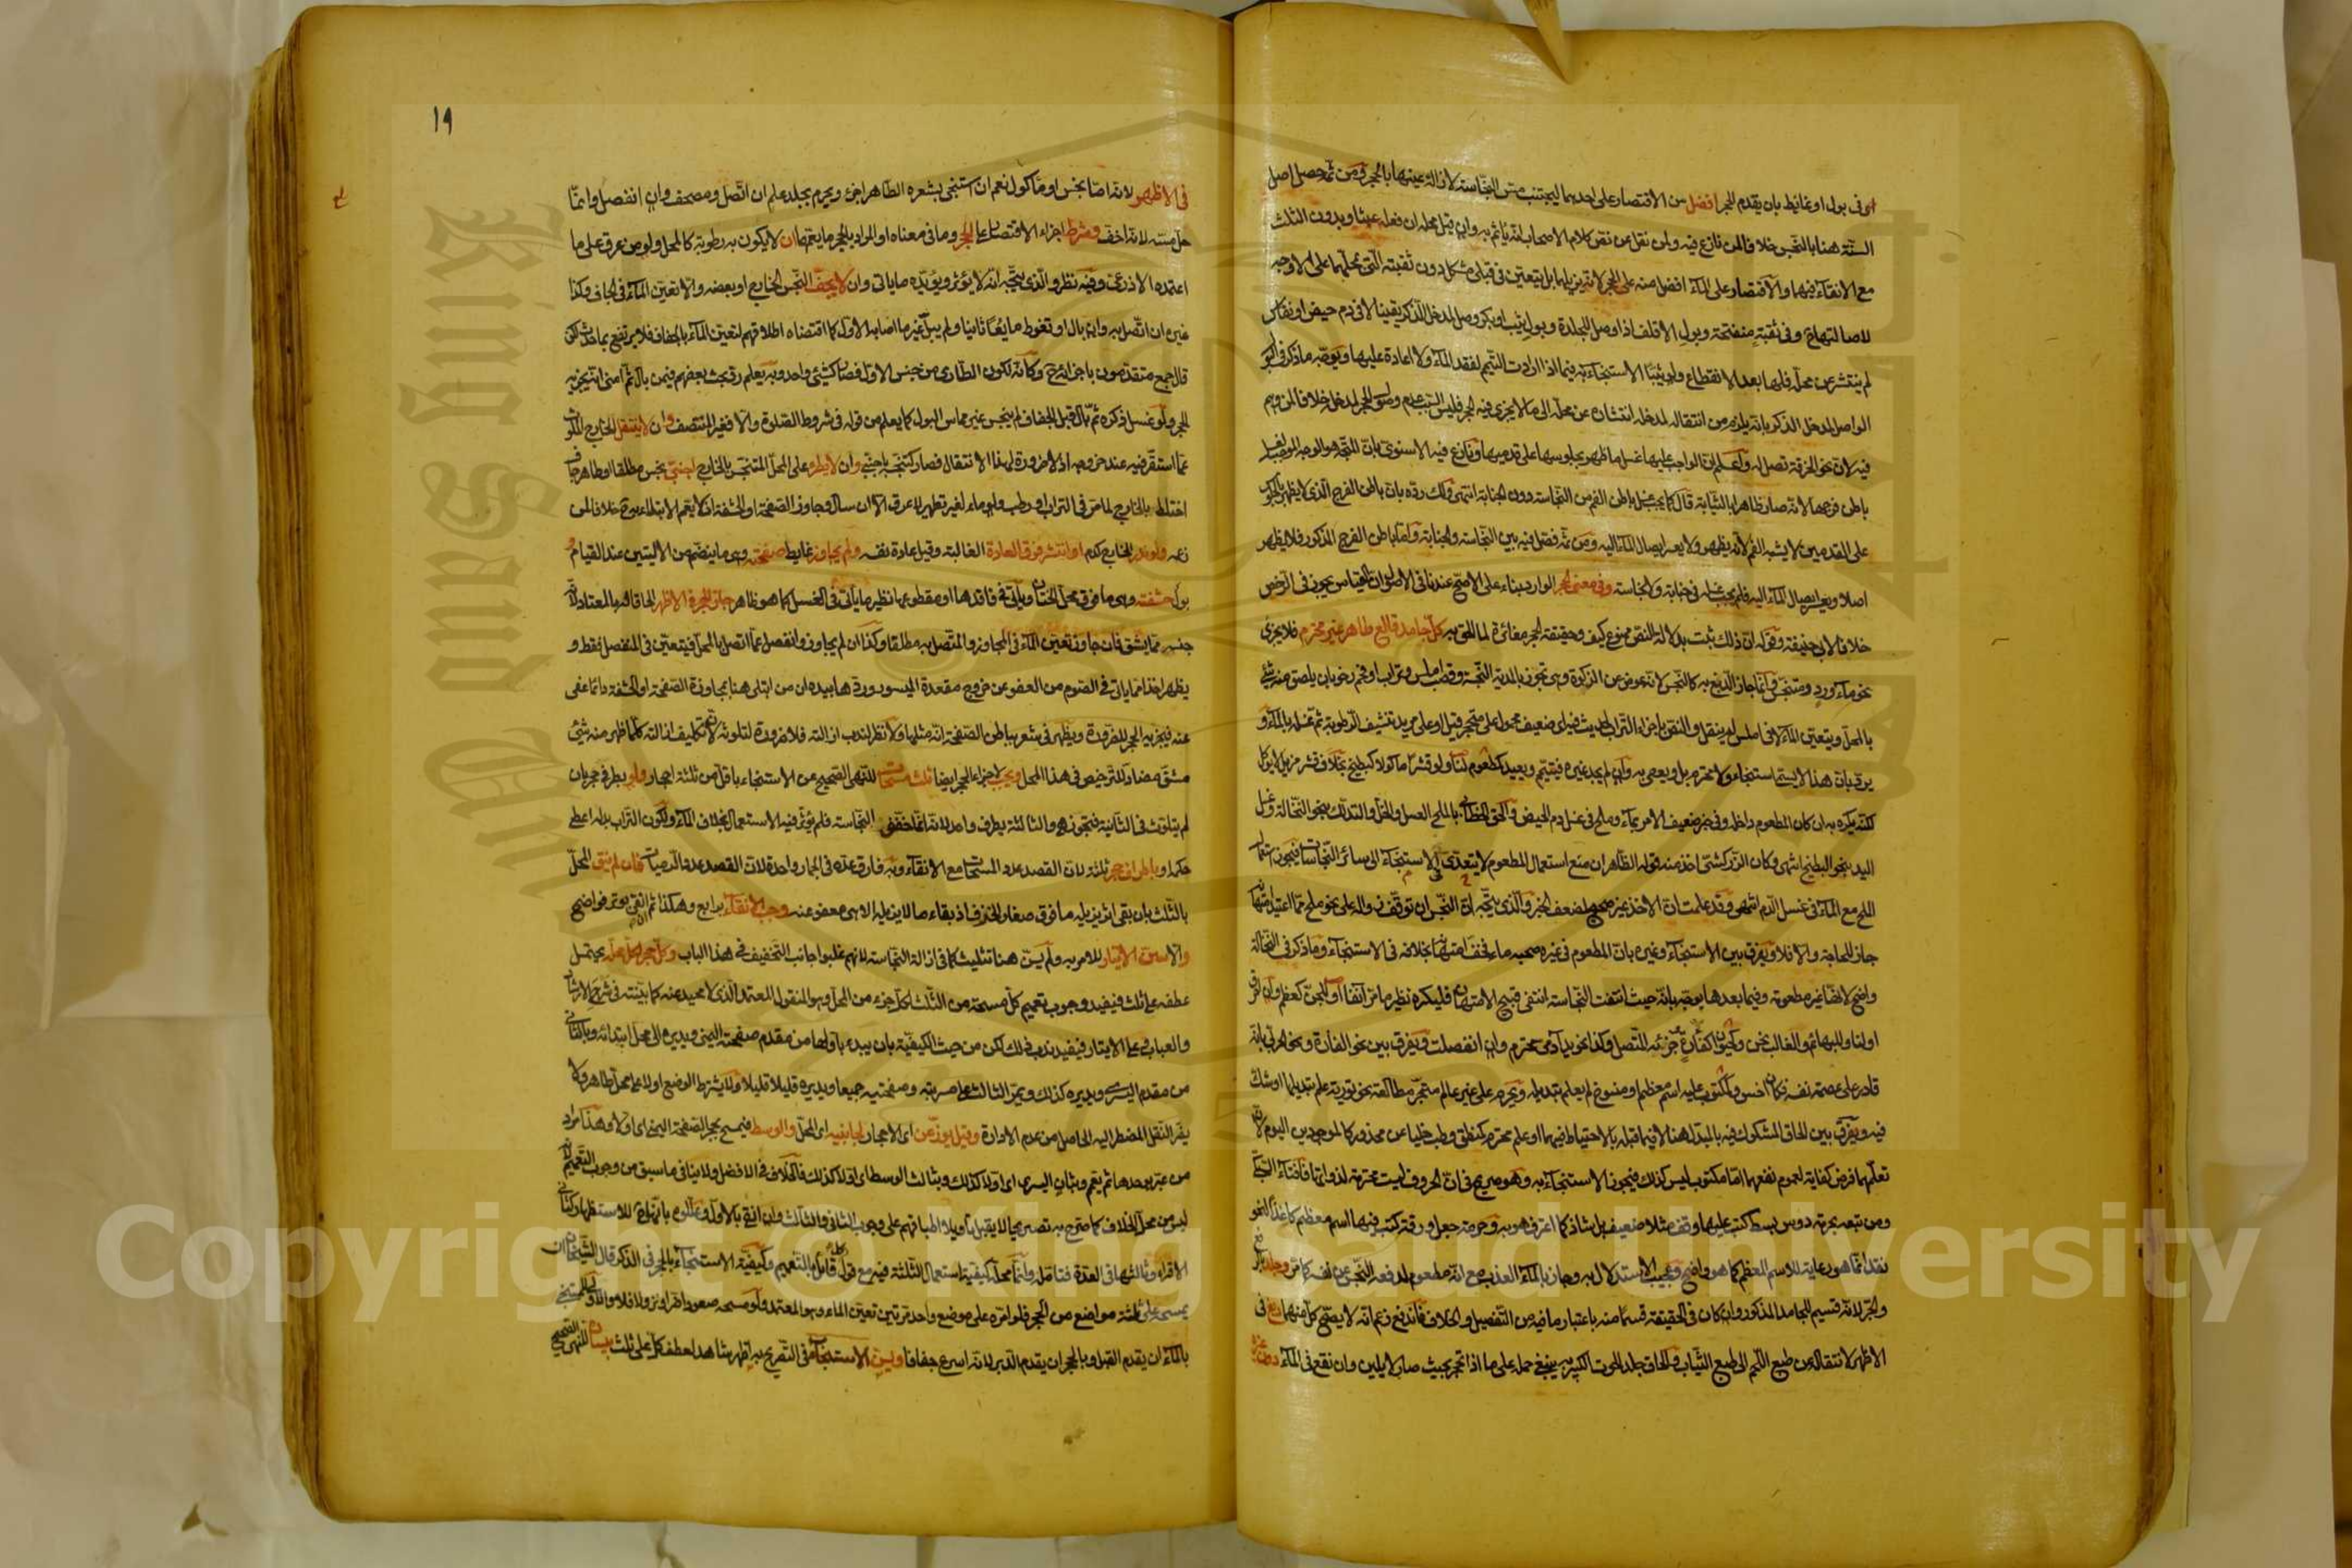 اى فى بول او غائط بان يقدم الحجر افضل من الاقتصار على احدهما ليجتنب مس النجاسة لازالة عينها بالحجر ومن ثم حصل اصل
السنة هنا بالنجس خلافا لمن نازع فيه
مع الانقاء فيهما والاقتصار على الماء افضل منه على الحجر لانه يزيلهما بل يتعين فى قبلى مشكل دون ثقبته التى بمحلهما على الاوجه
لاصالتها وفى ثقبة منفتحة وبول الاقلف اذا وصل للجلدة وبول ثيب او بكر وصل لمدخل الذكر يقينا لا فى دم حيض او نفاس
لم ينتشر عن محله فلها بعد الانقطاع ولو ثيبا الاستنجاء به فيما اذا ارادت التيمم لفقد الماء ولا اعادة عليها
الواصل لمدخل الذكر بانه يلزم من انتقاله لمدخله انتشاره عن محله الى ما لا يجزى فيه الحجر فليس السبب عدم وصول الحجر لمدخله خلافا لمن وهم
فيه لان نحو الخرقة تصل له واعلم ان الواجب عليها غسل ما ظهر بجلوسها على قدميها ونازع فيه الاسنوى بان المتجه هو الوجه الموجب لغسل
باطن فرجها لانه صار ظاهرا بالثيابة قال كما يجب غسل باطن الفم من النجاسة دون الجنابة انتهى ولك رده بان باطن الفرج الذى لا يظهر بالجلوس
على القدمين لا يشبه الفم لانه يظهر ولا يعسر ايصال الماء اليه ومن ثم فصل فيه بين النجاسة والجنابة واما باطن الفرج المذكور فلا يظهر
اصلا ويعسر ايصال الماء اليه فلم يجب غسله فى جنابة ولا نجاسة وفى معنى الحجر الوارد بناء على الاصح عندنا فى الاصول ان القياس يجوز فى الرخص
خلافا لابى حنيفة وقوله ان ذلك ثبت بدلالة النص ممنوع كيف وحقيقة الحجر مغائرة لما الحق به كل جامد قالع طاهر غير محترم فلا يجزئ
نحو ماء ورد ومتنجس وانما جاز الدبغ به كالنجس لانه عوض عن الذكاة وهى تجوز بالمدية النجسة وقصب املس وتراب او فحم رخو بان يلصق منه شئ
بالمحل ويتعين الماء
يرد بان هذا لا يسمى استنجاء ولا محترم بل ويعصى به
لكنه يكره به ان كان المطعوم داخله وفى خبر ضعيف الامر بماء وملح فى غسل دم الحيض والحق الخطابى بالملح العسل والخل والتدلك بنحو النخالة وغسل
اليد بنحو البطيخ انتهى وكان الزركشى اخذ منه قوله الظاهر ان منع استعمال المطعوم لا يتعدى الاستنجاء الى سائر النجاسات فيجوز استعمال
الملح مع الماء فى غسل الدم انتهى وقد علمت ان الاخذ غير صحيح لضعف الخبر والذى يتجه ان النجس ان توقف زواله على نحو ملح مما اعتيد امتهانه
جاز للحاجة والا فلا ويفرق بين الاستنجاء وغيره بان المطعوم فى غيره صحبه ماء فخف امتهانه بخلافه فى الاستنجاء وما ذكر فى النخالة
واضح لانها غير مطعومة وفيما بعدها يوجه بانه حيث انتفت النجاسة انتفى قبيح الامتهان فليكره نظير ما مر آنفا او للجن كعظم وان حرق
اولنا وللبهائم والغالب نحن
قادر على عصمة نفسه فكان اخس ومكتوب عليه اسم معظم او منسوخ لم يعلم تبديله ويحرم على غير عالم متبحر مطالعة نحو توراة علم تبديلها او شك
فيه ويفرق بين الحاق المشكوك فيه بالمبدل هنا لا فيما قبله بالاحتياط فيهما او علم محترم كمنطق وطب خليا عن محذور كالموجودين اليوم لان
تعلمهما فرض كفاية لعموم نفعهما اما مكتوب ليس كذلك فيجوز الاستنجاء به وهو صريح فى ان الحروف ليست محترمة لذواتها فافتاء السبكى
ومن تبعه بحرمة دوس بسط كتب عليها وقف مثلا ضعيف بل شاذ كما اعترف هو به وحرمة جعل ورقة كتب فيها اسم معظم كاغذا لنحو
نقد انما هو رعاية للاسم المعظم كما هو واضح وعجيب الاستدلال به وجاز بالماء العذب مع انه مطعوم لدفعه النجس عن نفسه كما مر وجلد
وبالجر لانه قسيم للجامد المذكور وان كان فى الحقيقة قسما منه باعتبار ما فيه من التفصيل والخلاف فاندفع زعم انه لا يصح كل منهما دبغ فى
الاظهر لانتقاله عن طبع اللحم الى طبع الثياب والحاق جلد الحوت الكبير به ينبغى حمله على ما اذا تحجر بحيث صار لا يلين وان نقع فى الماء دون غيره
١٩
فى الاظهر لانه اما نجس او مأكول نعم ان استنجى بشعره الطاهر اجزء ويحرم بجلد علم ان اتصل ومصحف وان انفصل وانما
حل مسه لانه اخف وشرط اجزاء الاقتصار على الحجر وما فى معناه او المراد بالحجر ما يعمهما ان لا يكون به رطوبة كالمحل ولو من عرق على ما
اعتمده الاذرعى وفيه نظر والذى يتجه انه لا يؤثر ويؤيده ما ياتى وان لا يجف النجس الخارج او بعضه والا تعين الماء فى الجاف وكذا
غيره ان اتصل به وان بال او تغوط مايعا ثانيا ولم يبل غير ما اصابه الاول كما اقتضاه اطلاقهم لتعين الماء بالجفاف فلا يرتفع بما حدث لكن
قال جمع متقدمون باجزائه ح وكأنه لكون الطارى من جنس الاول فصار كشئ واحد وبه يعلم رد بحث بعضهم فيمن بال ثم امنى انه يجزيه
الحجر ولو غسل ذكره ثم بال قبل الجفاف لم ينجس غير مماس البول كما يعلم من قوله فى شروط الصلوة والا فغير المنتصف وان لا ينتقل الخارج الملوث
عما استقر فيه عند خروجه اذ لا ضرورة لهذا الانتقال فصار كتنجسه باجنبى وان لا يطرء على المحل المتنجس بالخارج اجنبى نجس مطلقا او طاهر جاف
اختلط بالخارج لما مر فى التراب او رطب ولو ماء لغير تطهيره لا عرق الا ان سال وجاوز الصفحة او الحشفة اذ لا يعم الابتلاء به ح خلافا لمن
زعمه ولو ندر الخارج كدم او انتشر فوق العادة الغالبة وقيل عادة نفسه ولم يجاوز غايط صفحته وهى ما ينضم من الاليتين عند القيام و
بول حشفته وهى ما فوق محل الختان ويأتى فى فاقدها او مقطوعها نظير ما يأتى فى الغسل كما هو ظاهر جاز الحجر فى الاظهر الحاقا له بالمعتاد لان
جنسه مما يشق فان جاوز تعين الماء فى المجاوز والمتصل به مطلقا وكذا ان لم يجاوز وانفصل عما اتصل بالمحل فيتعين فى المنفصل فقط و
يظهر اخذا مما ياتى فى الصوم من العفو عن خروج مقعدة المبسور وردها بيده ان من ابتلى هنا بمجاوزة الصفحة او الحشفة دائما عفى
عنه فيجزيه الحجر للضرورة ويظهر فى شعر بباطن الصفحة انه مثلها ولا نظر لندب ازالته فلا ضرورة لتلوثه لان تكليف ازالته كلما ظهر منه شئ
مشق مضاد للترخيص فى هذا المحل ويجب لاجزاء الحجر ايضا ثلث مسحات للنهى الصحيح عن الاستنجاء باقل من ثلثة احجار ولو بطرفى حجر بان
لم يتلوث فى الثانية فيجوز هو والثالثة بطرف واحد لانه انما خفف النجاسة فلم يؤثر فيه الاستعمال بخلاف الماء ولكون التراب بدله اعطى
حكمه او باطراف حجر ثلثة لان القصد عدد المسحات مع الانقاء وبه فارق عده فى الجمار واحدة لان القصد عدد الرميات فان لم ينق المحل
بالثلث بان بقى اثر يزيله ما فوق صغار الخزف اذ بقاء ما لا يزيله الا هى معفو عنه وجب الانقاء برابع وهكذا ثم ان انقى بوتر فواضح
والا سن الايتار للامر به ولم يسن هنا تثليث كما فى ازالة النجاسة لانهم غلبوا جانب التخفيف فى هذا الباب وكل حجر لكل محله يحتمل
عطفه على ثلث فيفيد وجوب تعميم كل مسحة من الثلث لكل جزء من المحل وهو المنقول المعتمد الذى لا محيد عنه كما بينته فى شرح الارشاد
والعباب وعلى الايتار فيفيد ندب ذلك لكن من حيث الكيفية بان يبدء باولها من مقدم صفحته اليمنى ويديره الى محل ابتدائه وبالثانى
من مقدم اليسرى ويديره كذلك ويمر الثالث على مسربته وصفحتيه جميعا ويديره قليلا قليلا ولا يشترط الوضع اولا على محل طاهر ولا
يضر النقل المضطر اليه الحاصل من عدم الادارة وقيل يوزعن اى الاحجار لجانبيه اى المحل والوسط فيمسح بحجر الصفحة اليمنى اى اولا وهذا مراد
من عبر بوحدها ثم يعم وبثان اليسرى اى اولا كذلك وبثالث الوسط اى اولا كذلك فالخلاف فى الافضل ولا ينافى ما سبق من وجوب التعميم لانه
ليس من محل الخلاف كما صرح به تصريحا لا يقبل تأويلا اطباقهم على وجوب الثانى والثالث وان انقى بالاول وعللوه بانهما ح للاستظهار كثانى
الاقراء وثالثها فى العدة فتأمله وانما محله كيفية استعمال الثلثة فيه مع قول كل قائل بالتعميم وكيفية الاستنجاء بالحجر فى الذكر قال الشيخان ان
يمسحه على ثلثة مواضع من الحجر فلو امره على موضع واحد مرتين تعين الماء وهو المعتمد ولو مسحه صعودا ضر او نزولا فلا والاولى للمستنجى
بالماء ان يقدم القبل وبالحجر ان يقدم الدبر لانه اسرع جفافا ويسن الاستنجاء فى التصريح به اظهر شاهد لعطف كل على ثلث بيساره للنهى الصحيح
Copyright © King Saud University
King Saud University